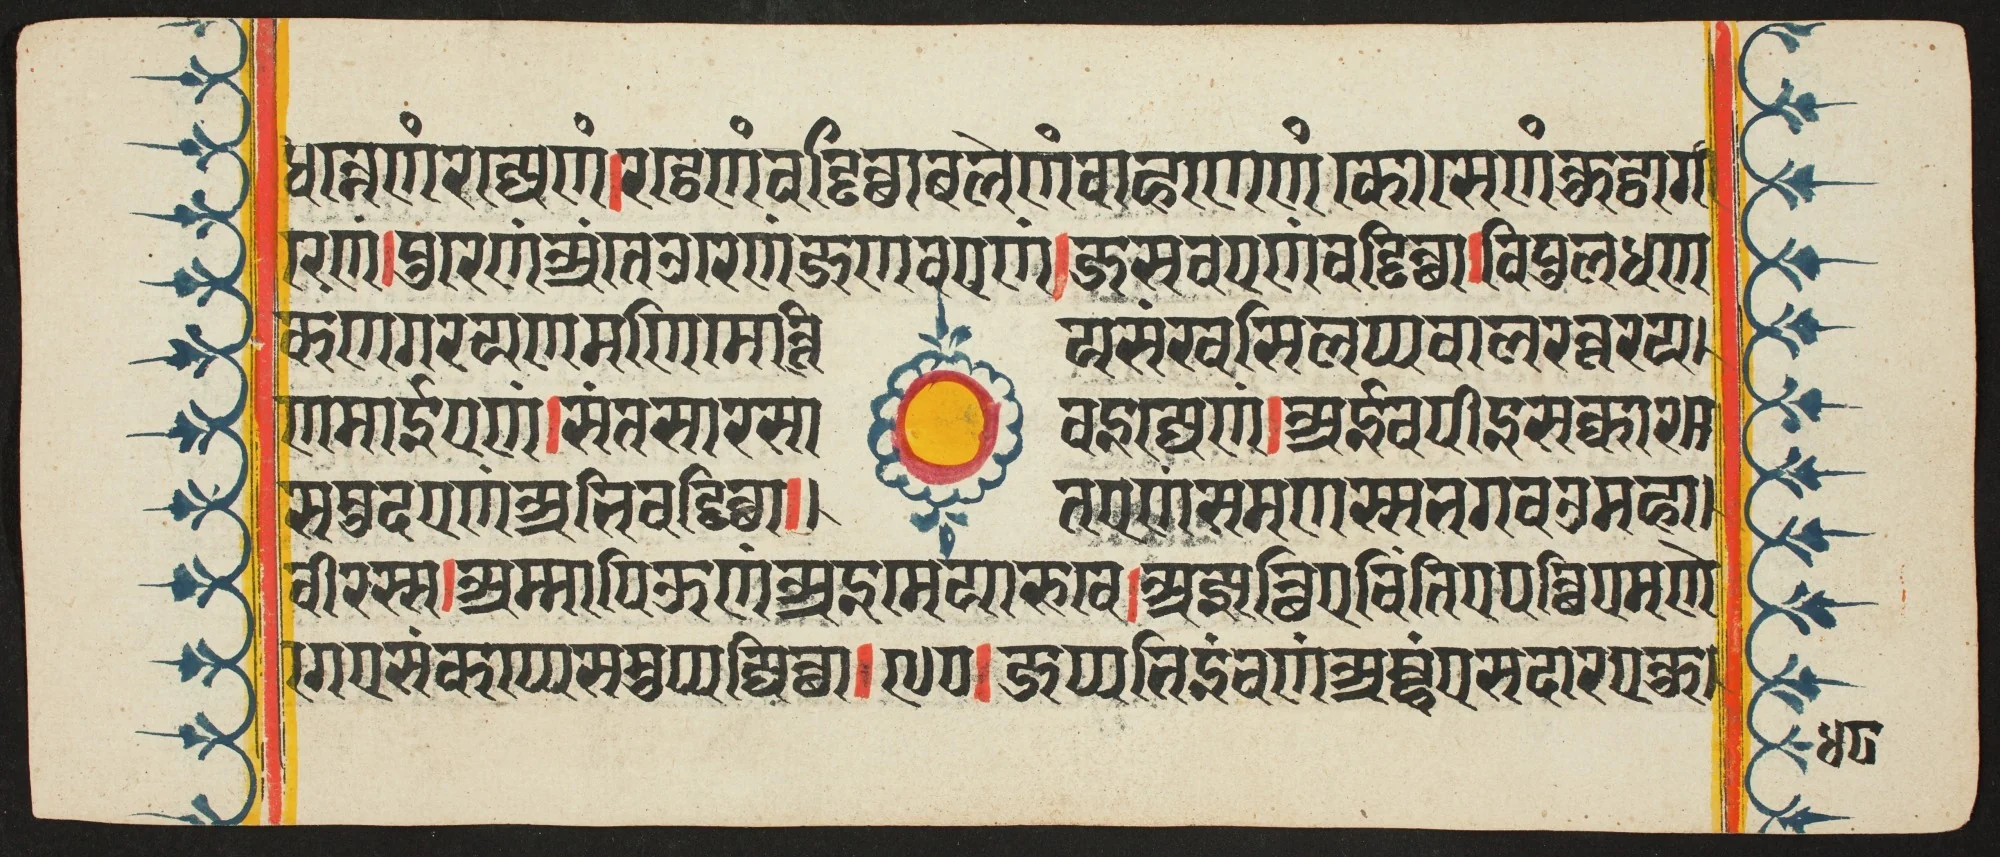 धन्नेणंरज्जेणं।रट्ठेणंवड्ढित्थाबलेणंवाहणेणंकोसेणंकुट्ठागा
रेणं।पुरेणंअंतेउरेणंजणवएणं।जसवाएणंवड्ढित्था।विपुलधण
कणगरयणमणिमोत्ति
यसंखसिलप्पवालरत्तरयण
माईएणं।संतसारसा
वइज्जेणं।अईवपीइसक्कारे
समुदएणंअभिवड्ढित्था॥
तएणंसमणस्सभगवउमहा
वीरस्स।अम्मापिऊणंअइमेयारूवे।अज्झत्थिएचिंतिएपत्थिएमणो
गएसंकप्पेसमुप्पज्जित्था।जप्पभिइंचणंअम्हंएसदारएकु